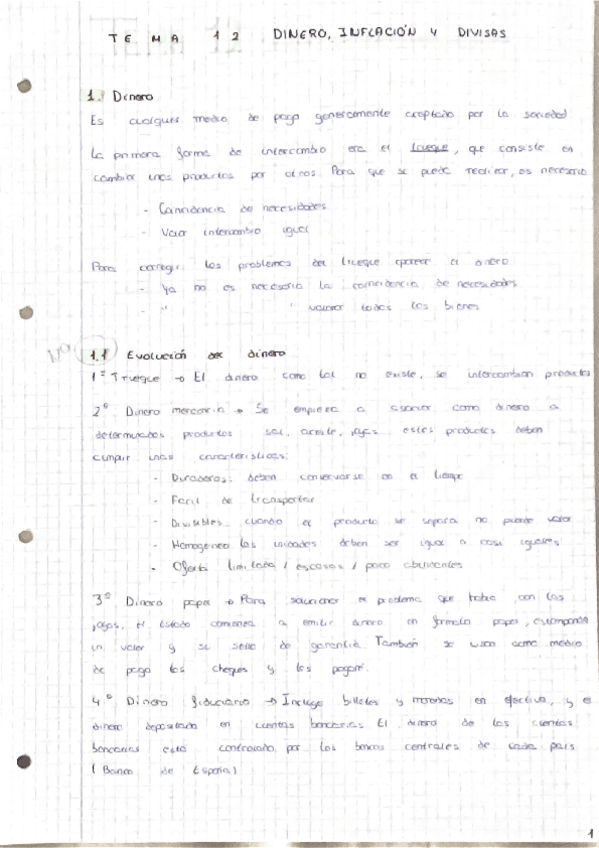 TEMA 12 DINERO, INFLACIÓN Y DIVISAS
1. Dinero
Es cualquier medio de pago generalmente aceptado por la sociedad
La primera forma de intercambio era el trueque, que consiste en
cambiar unos productos por otros. Para que se pueda realizar, es necesario
- Coincidencia de necesidades
- Valor intercambio igual
Para corregir los problemas del trueque aparece el dinero
- Ya no es necesario la coincidencia de necesidades
- " " valorar todos los bienes
NO 1.1 Evolución del dinero
1º Trueque → El dinero como tal no existe, se intercambian productos
2º Dinero mercancía → Se empieza a asociar como dinero a
determinados productos sal, aceite, joyas estos productos deben
cumplir unas características:
- Duraderos: deben conservarse en el tiempo
- Facil de transportar
- Divisibles cuando el producto se separa no pierde valor
- Homogeneo las unidades deben ser igual o casi iguales
- Oferta limitada / escasos / poco abundantes
3º Dinero papel → Para solucionar el problema que había con las
joyas, el Estado comienza a emitir dinero en formato papel, estampando
un valor y su sello de garantía También se usan como medio
de pago los cheques y los pagaré.
4º Dinero fiduciario → Incluye billetes y monedas en efectivo, y el
dinero depositado en cuentas bancarias El dinero de las cuentas
bancarias está controlado por los bancos centrales de cada país
(Banco de España)
1